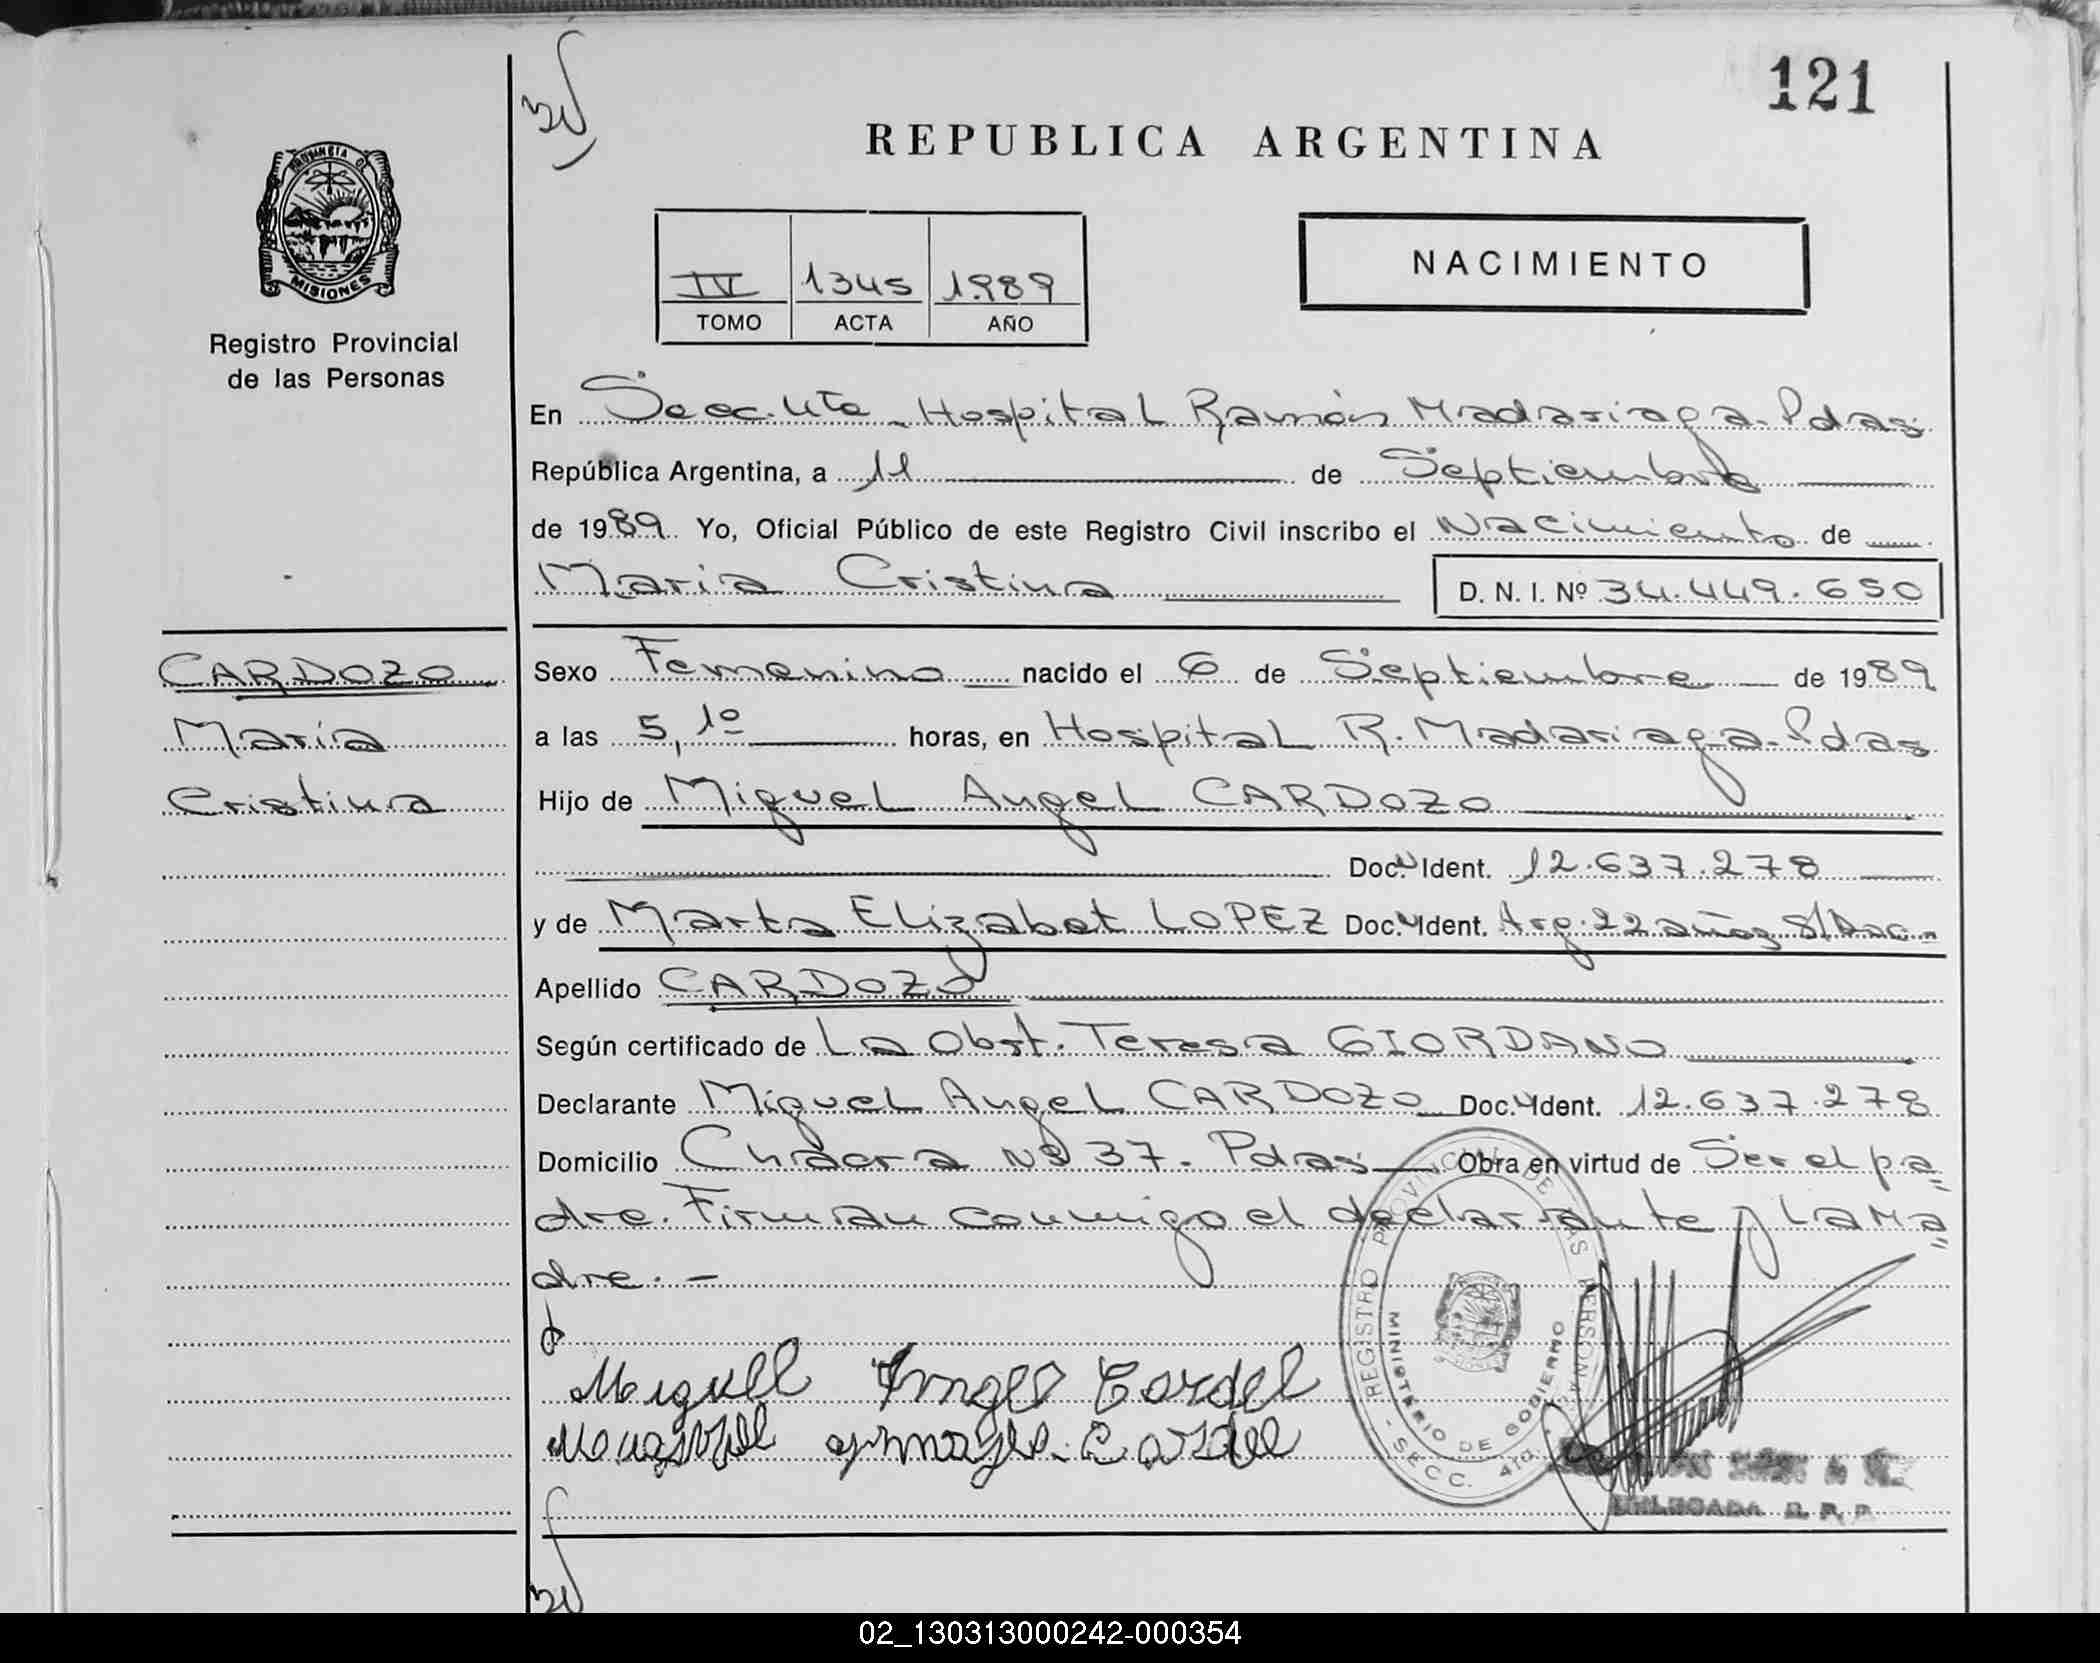 121
REPUBLICA ARGENTINA
PROVINCIA DE
MISIONES
Registro Provincial
de las Personas
IV 1345 1989
TOMO ACTA AÑO
NACIMIENTO
En Secc. 4ta - Hospital Ramón Madariaga - Pdas.
República Argentina, a 11 de Septiembre
de 1989. Yo, Oficial Público de este Registro Civil inscribo el Nacimiento de
María Cristina D. N. I. Nº 34.449.650
CARDOZO
María
Cristina
Sexo Femenino nacido el 6 de Septiembre de 1989
a las 5,10 horas, en Hospital R. Madariaga - Pdas
Hijo de Miguel Angel CARDOZO
Doc. Ident. 12.637.278
y de Marta Elizabet LOPEZ Doc. Ident. Arg. 22 años S/Doc.
Apellido CARDOZO
Según certificado de La Obst. Teresa GIORDANO
Declarante Miguel Angel CARDOZO Doc. Ident. 12.637.278
Domicilio Chacra Nº 37. Pdas. Obra en virtud de Ser el pa=
dre. Firman conmigo el declarante y la Ma=
dre. -
Miguel Angel
REGISTRO PROVINCIAL DE LAS PERSONAS
MINISTERIO DE GOBIERNO
- SECC. 4ta.
DELEGADA R. P. P.
02_130313000242-000354